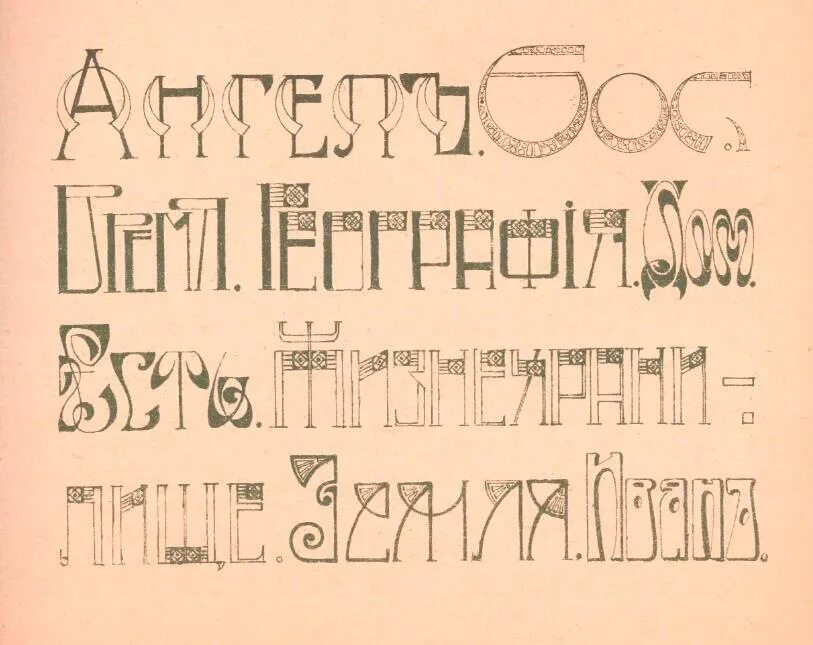 Ангелъ. Бос.
Время. Географія. Дом.
Есть. Жизнехрани-
лище. Земля. Иванъ.